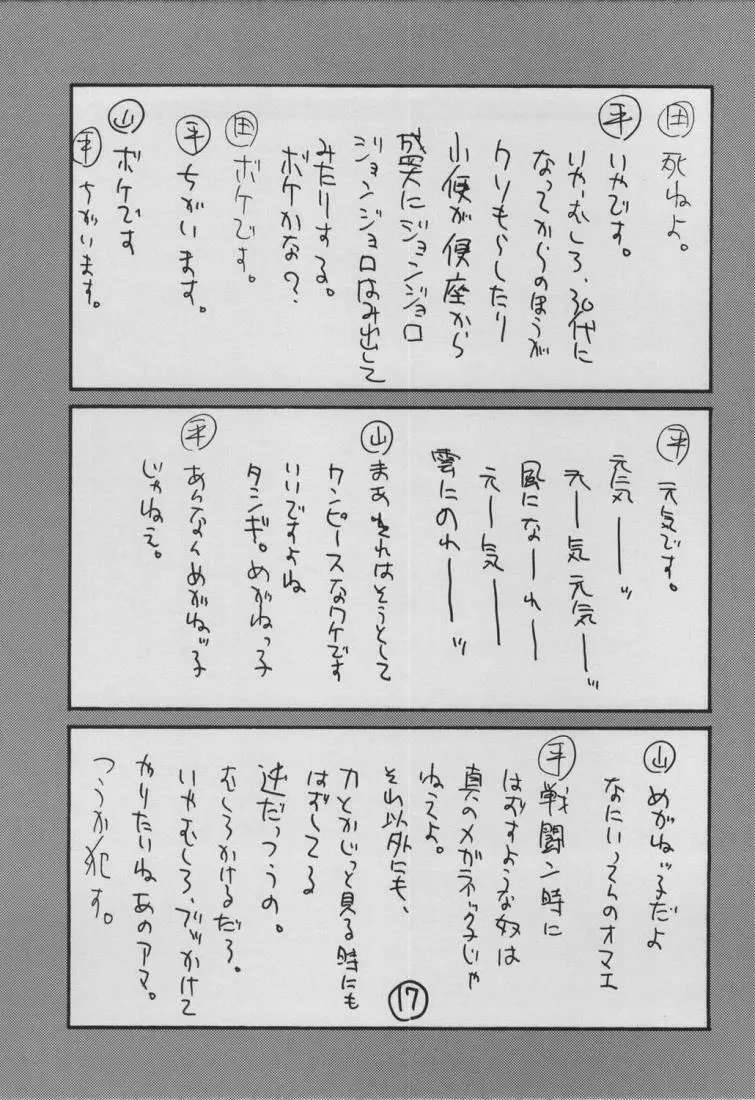 田 死ねよ。
平 いやです。
いや、むしろ、30代に
なってからのほうが
クソもらしたり
小便が便座から
盛大にジョンジョロ
ジョンジョロはみ出して
みたりする。
ボケかな?
田 ボケです。
平 ちがいます。
山 ボケです
平 ちがいます。
平 元気です。
元気ーッ
元ー気元気ーッ
風になーれー
元ー気ー
雲にのれーッ
山 まあそれはそうとして
ワンピースなワケです
いいですよね
タシギ。めがねっ子
平 あんなんめがねッ子
じゃねえ。
山 めがねッ子だよ
なにいってんのオマエ
平 戦闘ン時に
はずすような奴は
真のメガネッ子じゃ
ねえよ。
それ以外にも、
刀とかじっと見る時にも
はずしてる
逆だっつうの。
むしろかけるだろ。
いやむしろ、ブッかけて
やりたいねあのアマ。
つうか犯す。
17